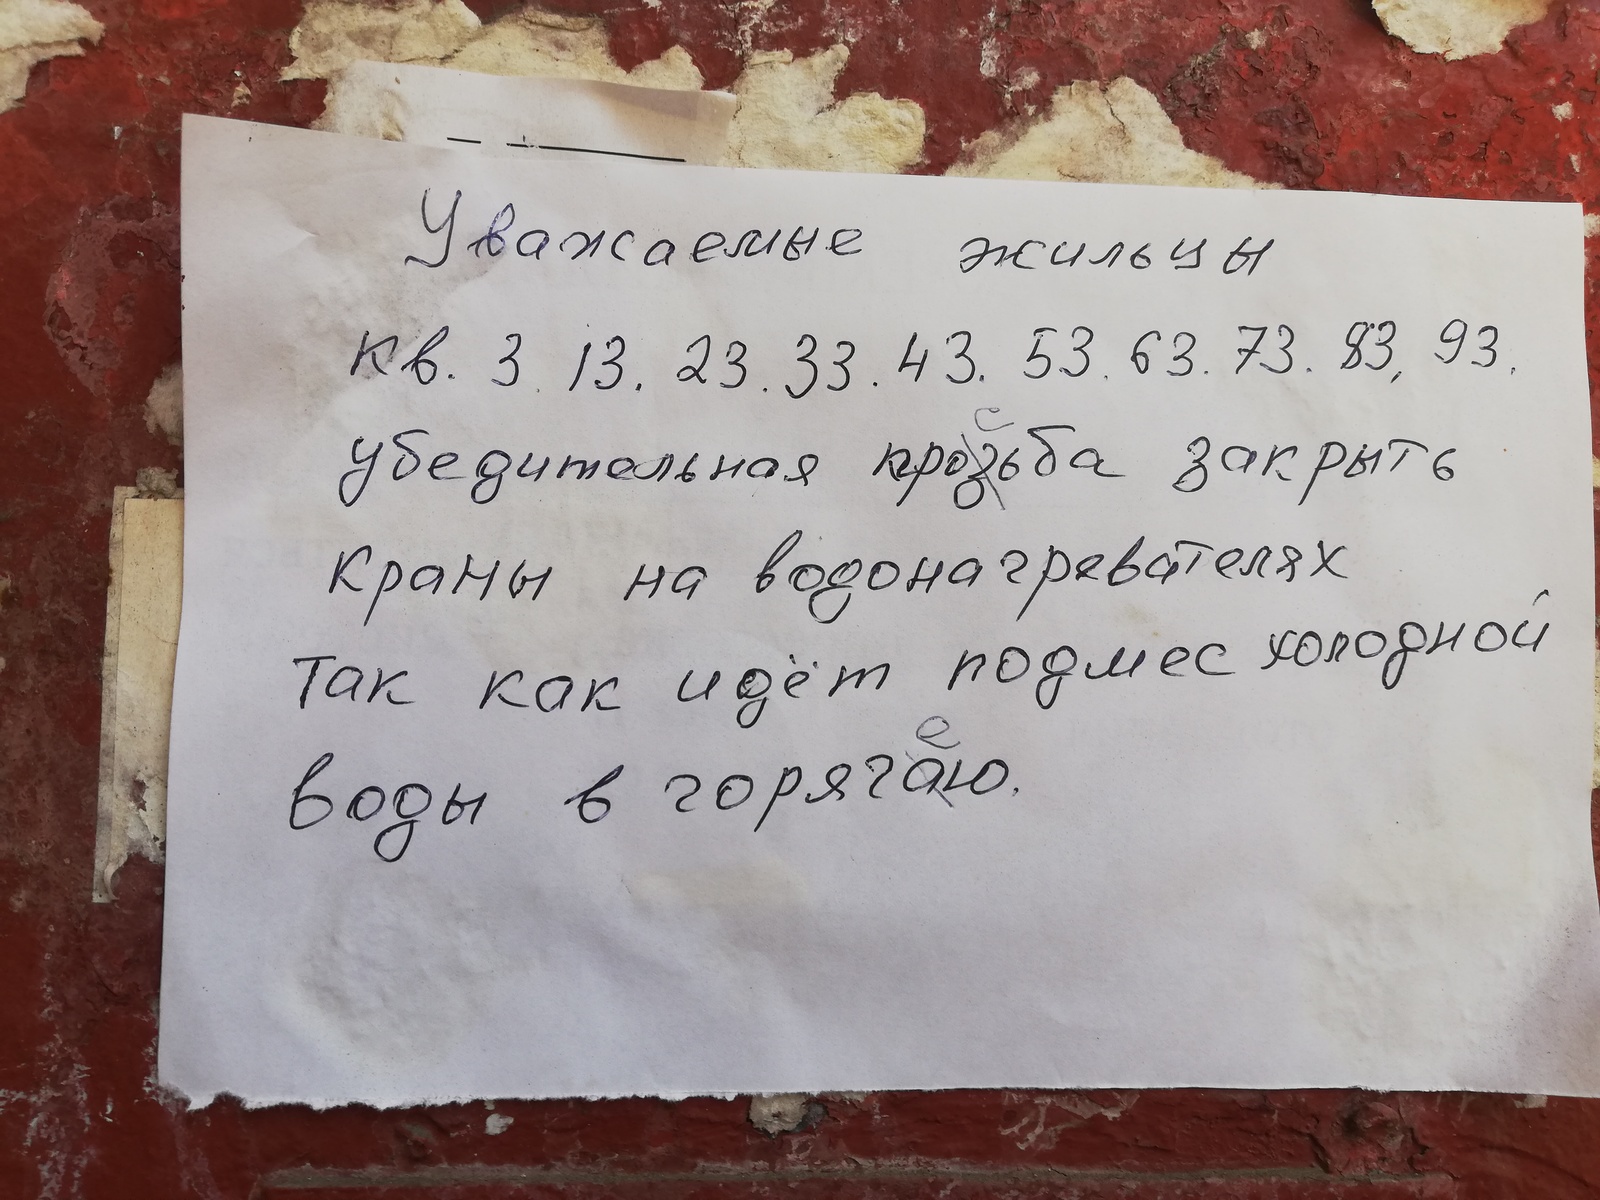 Уважаемые жильцы
кв. 3. 13. 23. 33. 43. 53. 63. 73. 83, 93.
убедительная прозьба закрыть
с
краны на водонагревателях
так как идёт подмес холодной
воды в горячаю.
е